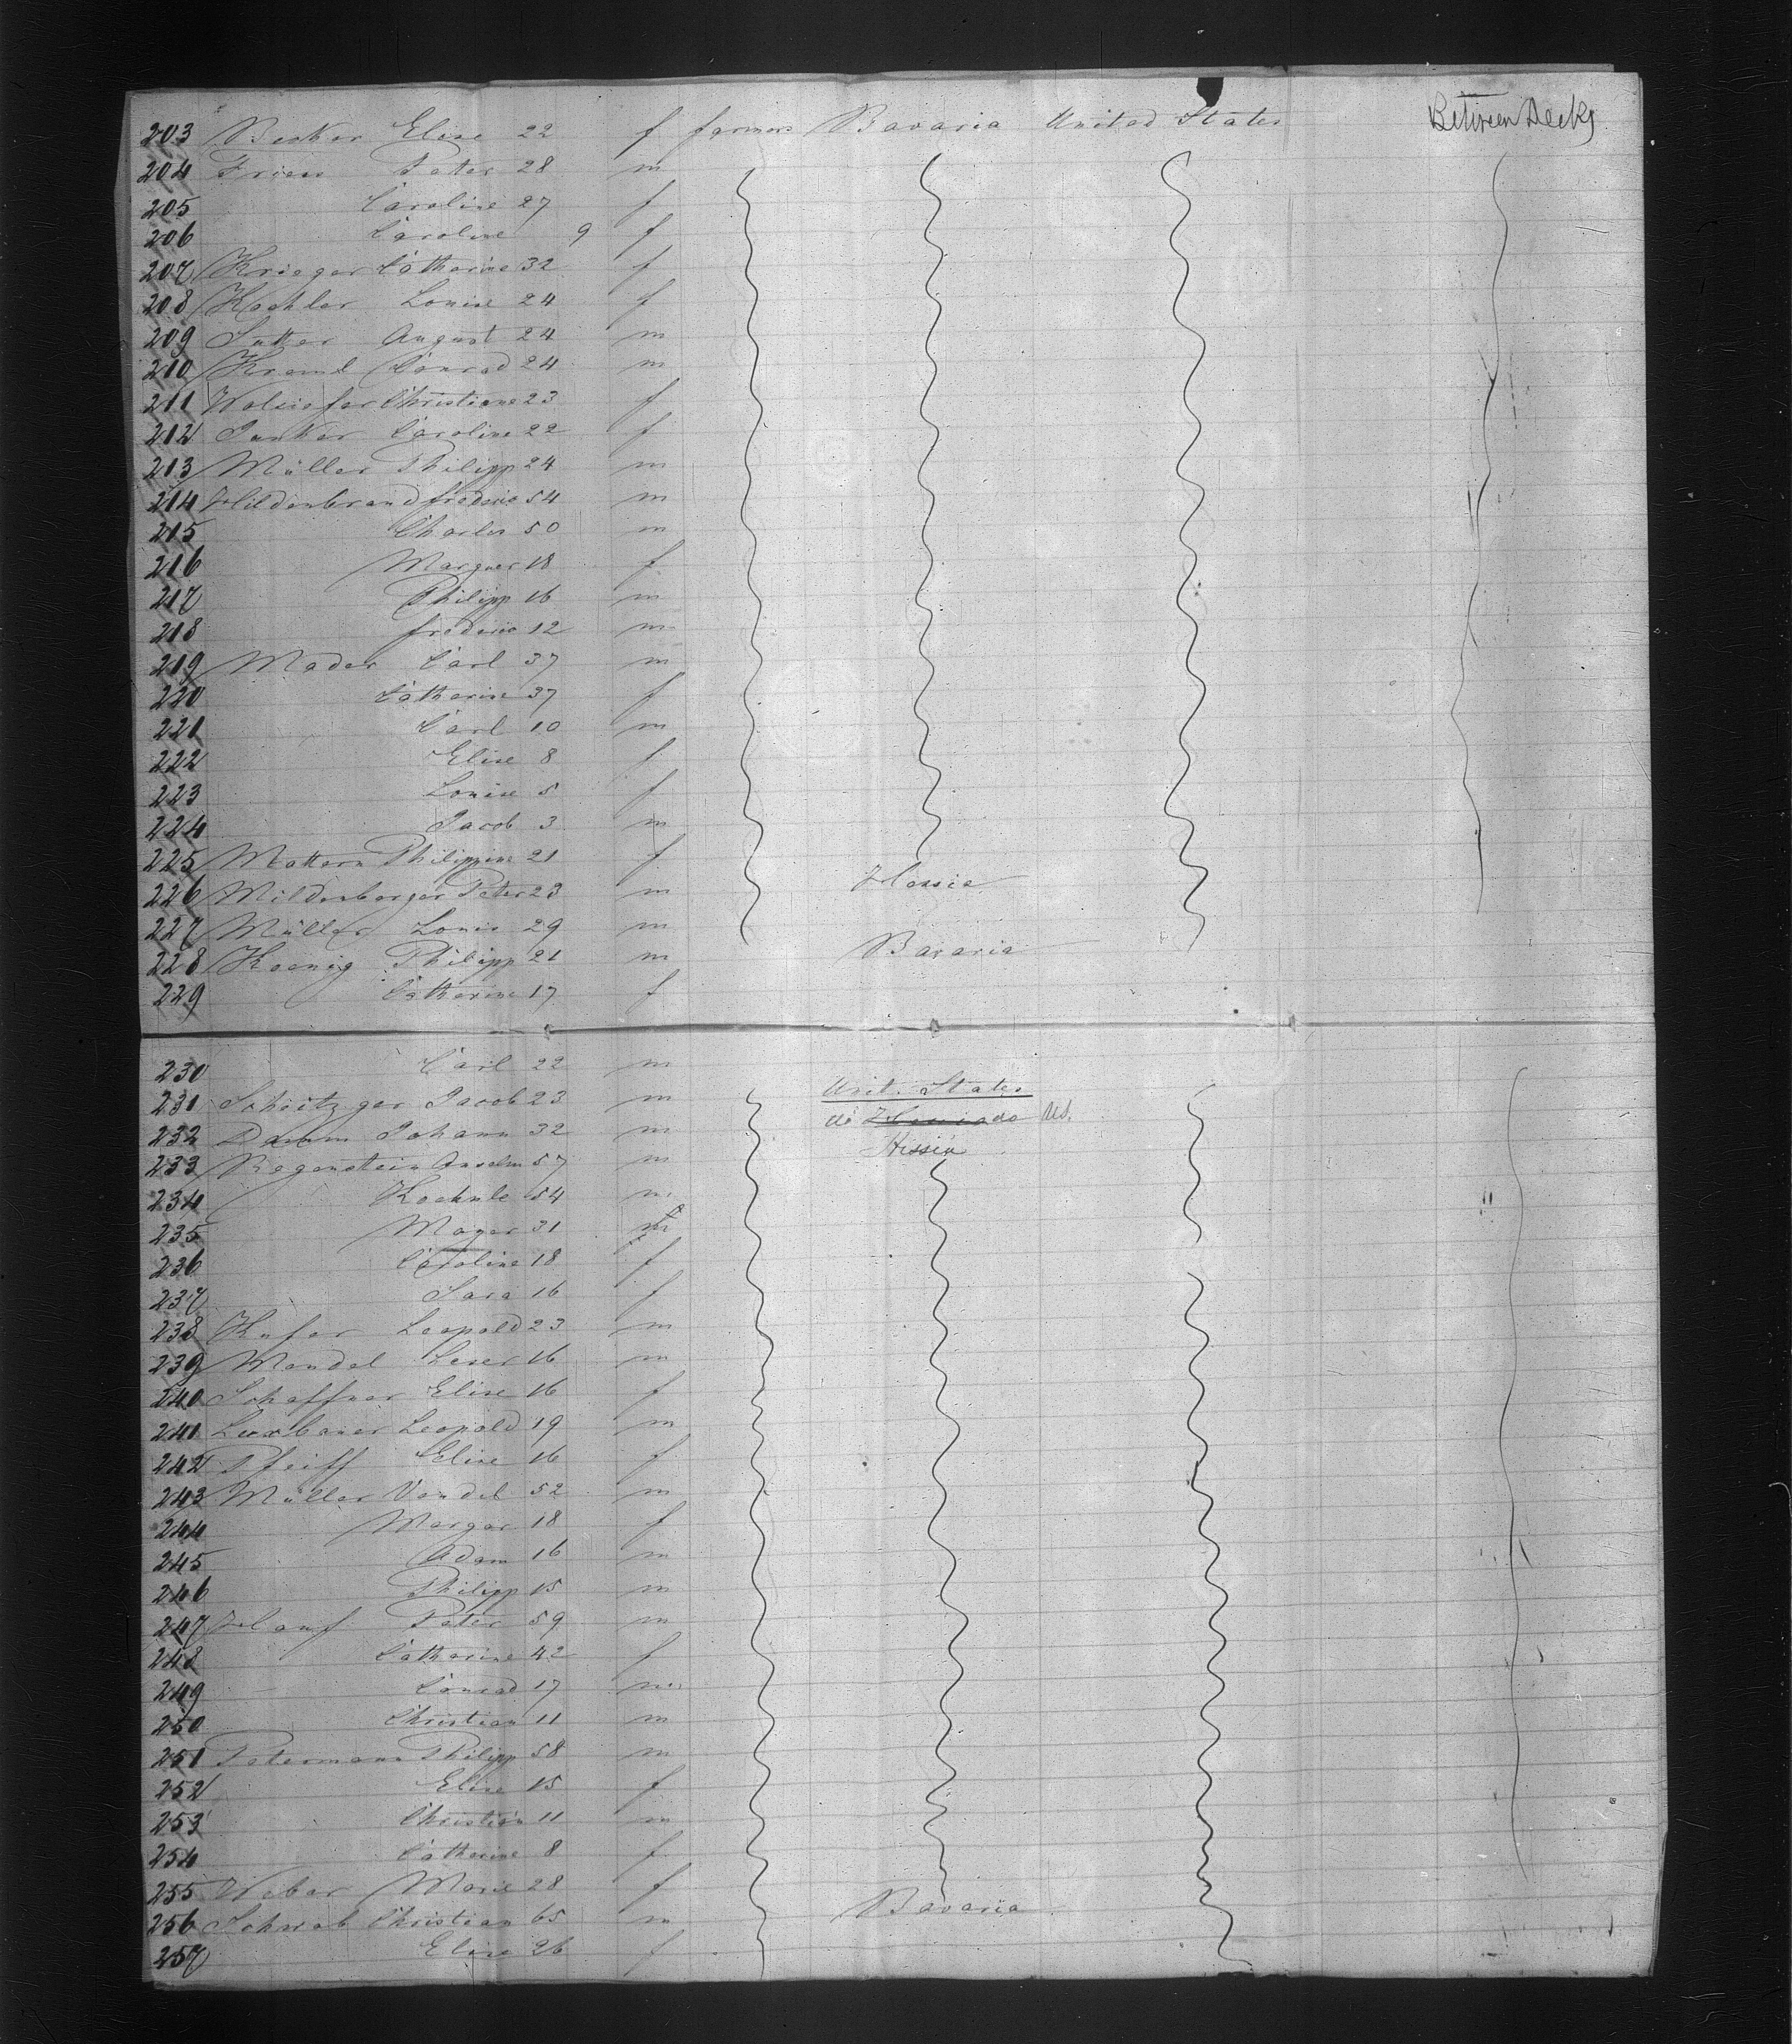 203 Becker Elise 22 f farmers Bavaria United States Between Decks
204 Frien Peter 28 m
205 Caroline 27 f
206 Caroline 9 f
207 Krieger Catherine 32 f
208 Koehler Louise 24 f
209 Sutter August 24 m
210 Conrad 24 m
211 Christiane 23 f
212 Junker Caroline 22 f
213 Müller Philipp 24 m
214 Hildenbrand frederic 54 m
215 Charles 50 m
216 Marguer 18 f
217 Philipp 16 m
218 frederic 12 m
219 Mader Carl 37 m
220 Catherine 37 f
221 Carl 10 m
222 Elise 8 f
223 Louise 5 f
224 Jacob 3 m
225 Mattern Philippine 21 f
226 Mildenberger Peter 23 m Hessia
227 Müller Louis 29 m
228 Koenig Philipp 21 m Bavaria
229 Catherine 17 f
230 Carl 22 m
231 Jacob 23 m Unit. States
232 Damm Johann 32 m do Hessia do US.
233 Regenstein Anselm 57 m Hessia
234 54 m
235 Mayer 31
236 Caroline 18 f
237 Sara 16 f
238 Kufer Leopold 23 m
239 Mendel Leser 16 m
240 Schaffner Elise 16 f
241 Leopold 19 m
242 Pfeiff Elise 16 f
243 Müller Vendel 52 m
244 Margar 18 f
245 Adam 16 m
246 Philipp 15 m
247 Hauf Peter 59 m
248 Catherine 42 f
249 Conrad 17 m
250 Christian 11 m
251 Petermann Philipp 58 m
252 Elise 15 f
253 Christian 11 m
254 Catherine 8 f
255 Weber Marie 28 f
256 Schwab Christian 65 m Bavaria
257 Elise 26 f